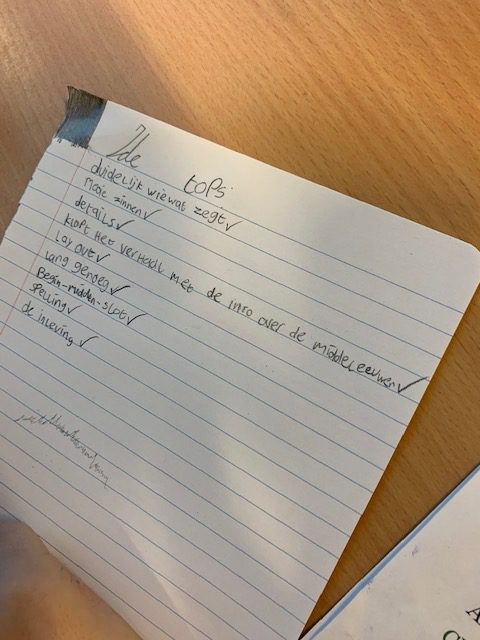 Ide
tops:
duidelijk wie wat zegt ✓
Mooie zinnen ✓
details ✓
kloft het verhaal met de info over de middeleeuwen ✓
Lay out ✓
lang genoeg ✓
Begin-midden-slot ✓
spelling ✓
de inleving ✓